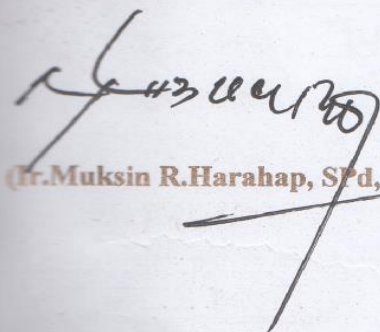 (Ir.Muksin R.Harahap, SPd,